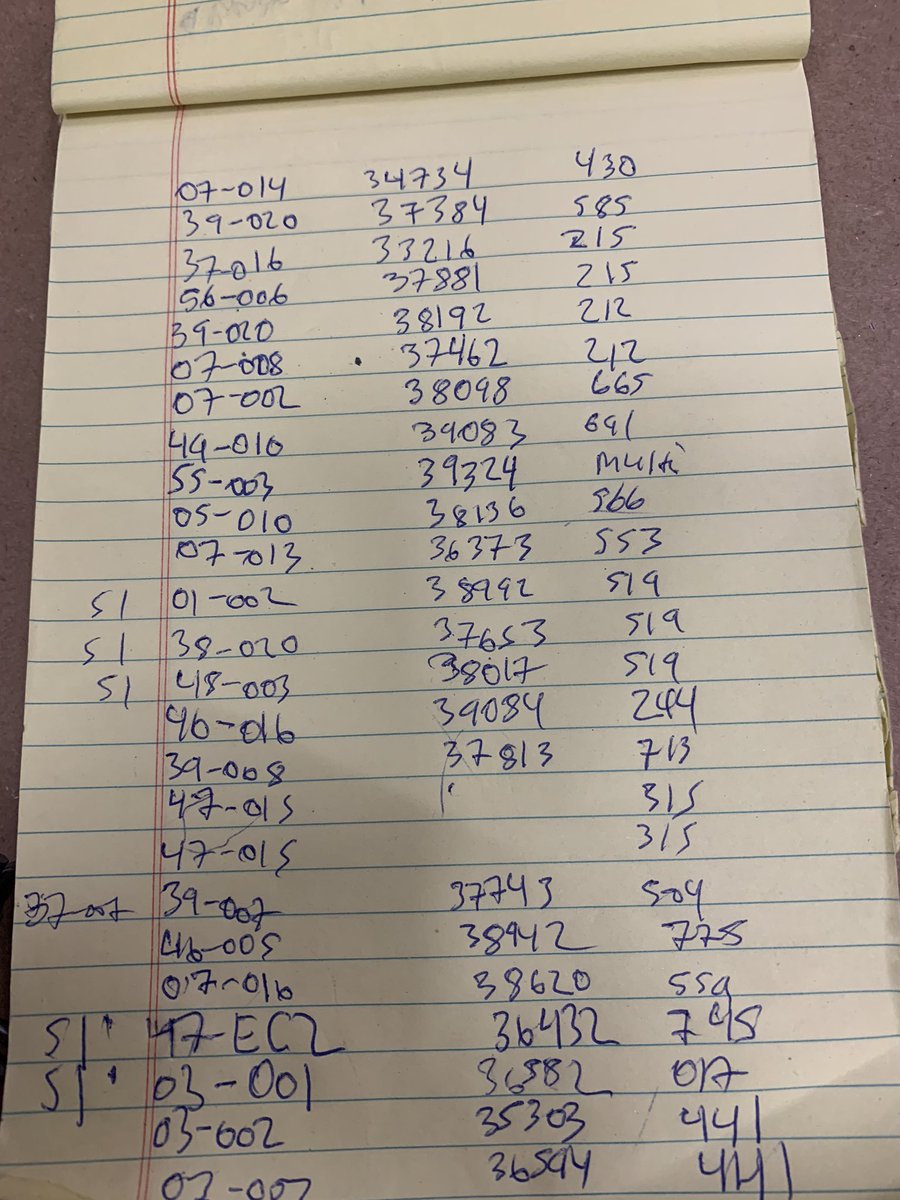 07-014 34734 430
39-020 37384 585
37-016 33216 215
56-006 37881 215
39-020 38192 212
07-008 37462 212
07-002 38098 665
49-010 39083 691
55-003 39324 Multi
05-010 38136 566
07-013 36373 553
51 01-002 38992 519
51 38-020 37653 519
51 48-003 38017 519
46-016 39084 244
39-008 37813 713
47-015 315
47-015 315
37-007 39-007 37743 504
46-005 38942 775
017-016 38620 559
51 47-EC2 36432 745
51 03-001 36982 017
03-002 35303 441
36594 441